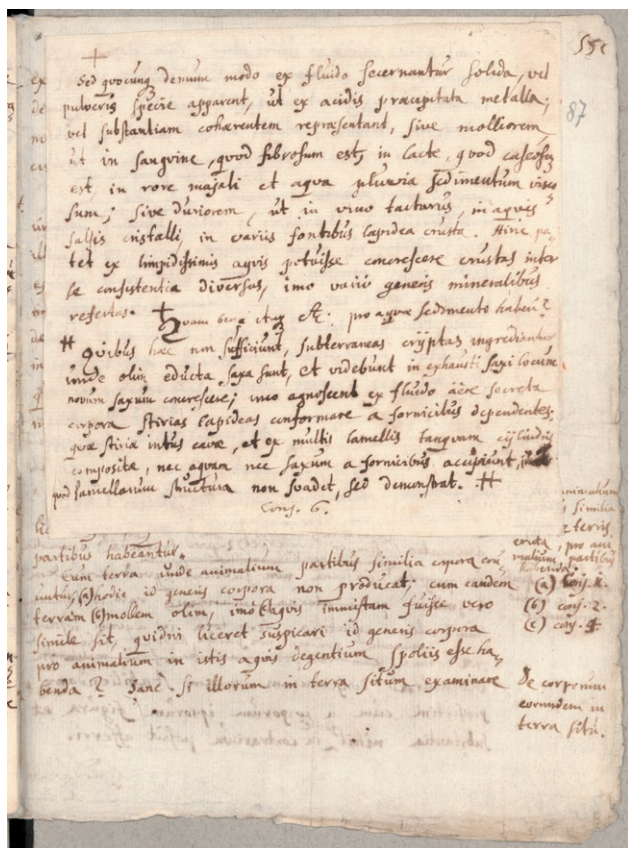 Sed quocunq demum modo ex fluido secernantur solida, vel
pulveris specie apparent, ut ex acidis præcipitata metalla;
vel substantiam cohærentem repræsentant, sive molliorem
ut in sanguine, quod fibrosum est, in lacte, quod caseosum
est, in rore majali et aqua pluvia sedimentum visco
sum; sive duriorem, ut in vino tartarus, in aquis
salsis cristalli, in variis fontibus lapidea crusta. Hinc pa
tet ex limpidissimis aquis potuisse concrescere crustas inter
se consistentia diversas, imo varii generis mineralibus
refertas. Quam bene itaq &c. pro aquæ sedimento haberi?
# Quibus hæc non sufficiunt, subterraneas cryptas ingrediantur
unde olim educta saxa sunt, et videbunt in exhausti saxi locum
novum saxum concrescere; imo agnoscent ex fluido aëre secreta
corpora stirias lapideas conformare a fornicibus dependentes.
quæ stiriæ intus cavæ, et ex multis lamellis tanquam cylindris
compositæ, nec aquam nec saxum a fornicibus accipiunt,
quod lamellarum structura non suadet, sed demonstrat. #
Cons. 6.
87
partibus habeantur.
Cum terra unde animalium partibus similia corpora eru
untur, (a) hodie id generis corpora non producat; cum eandem
terram (b) mollem olim, imo (c) aquis immistam fuisse vero
simile sit, quidni liceret suspicari id generis corpora
pro animalium in istis aquis degentium spoliis esse ha
benda? Sanè si illorum in terra situm examinare
animalium
similia
e terris
eruta, pro ani
malium partibus
habenda.
(a) Cons. 1.
(b) cons. 2.
(c) cons. 4.
De corporum
eorundem in
terra situ.